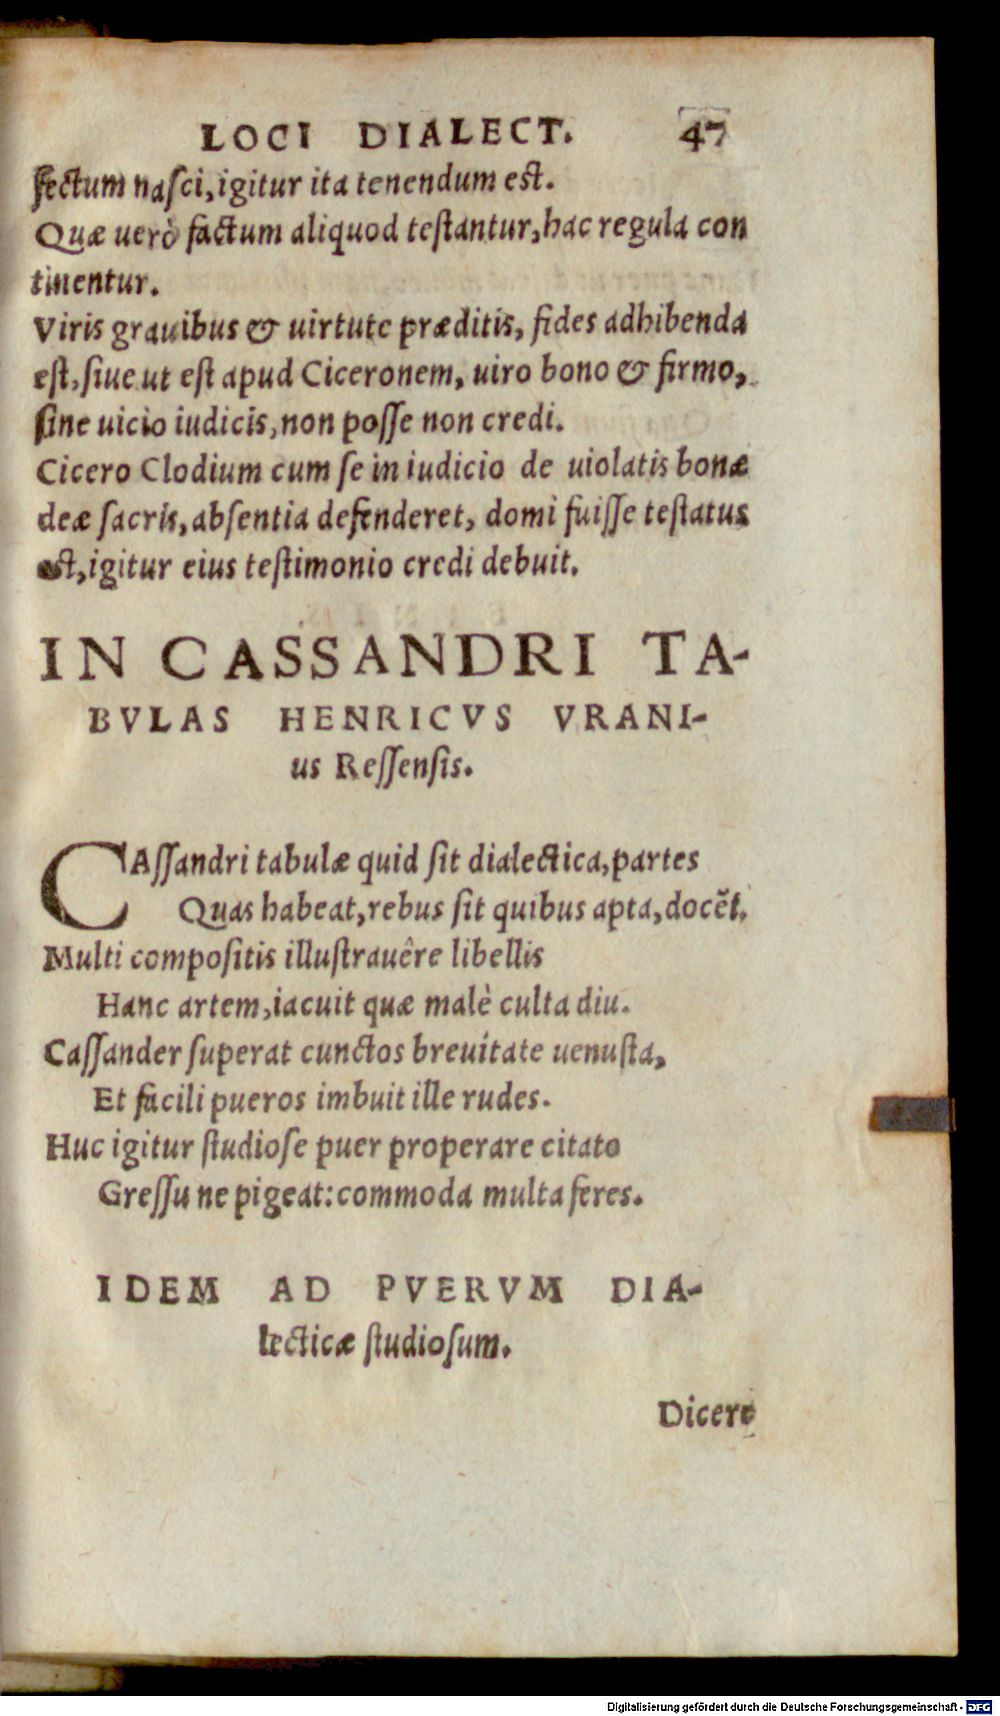 LOCI DIALECT. 47
fectum nasci, igitur ita tenendum est.
Quæ uerò factum aliquod testantur, hac regula con
tinentur.
Viris grauibus & uirtute præditis, fides adhibenda
est, siue ut est apud Ciceronem, uiro bono & firmo,
sine uicio iudicis, non posse non credi.
Cicero Clodium cum se in iudicio de uiolatis bonæ
deæ sacris, absentia defenderet, domi fuisse testatus
est, igitur eius testimonio credi debuit.
IN CASSANDRI TA-
BVLAS HENRICVS VRANI-
us Ressensis.
CAssandri tabulæ quid sit dialectica, partes
Quas habeat, rebus sit quibus apta, docẽt.
Multi compositis illustrauêre libellis
Hanc artem, iacuit quæ malè culta diu.
Cassander superat cunctos breuitate uenusta,
Et facili pueros imbuit ille rudes.
Huc igitur studiose puer properare citato
Gressu ne pigeat: commoda multa feres.
IDEM AD PVERVM DIA-
lecticæ studiosum.
Dicere
Digitalisierung gefördert durch die Deutsche Forschungsgemeinschaft - DFG